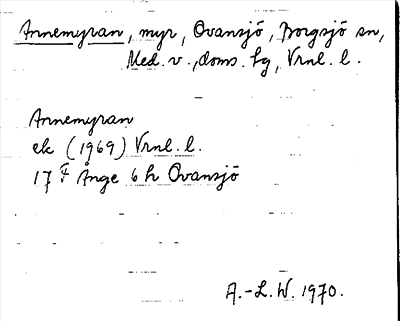 Annemyran, myr, Ovansjö, Borgsjö sn,
Med. v., doms. bg, Vrnl. l.
Annemyran
ek (1969) Vrnl. l.
17 F Ånge 6 h Ovansjö
A.-L. W. 1970.